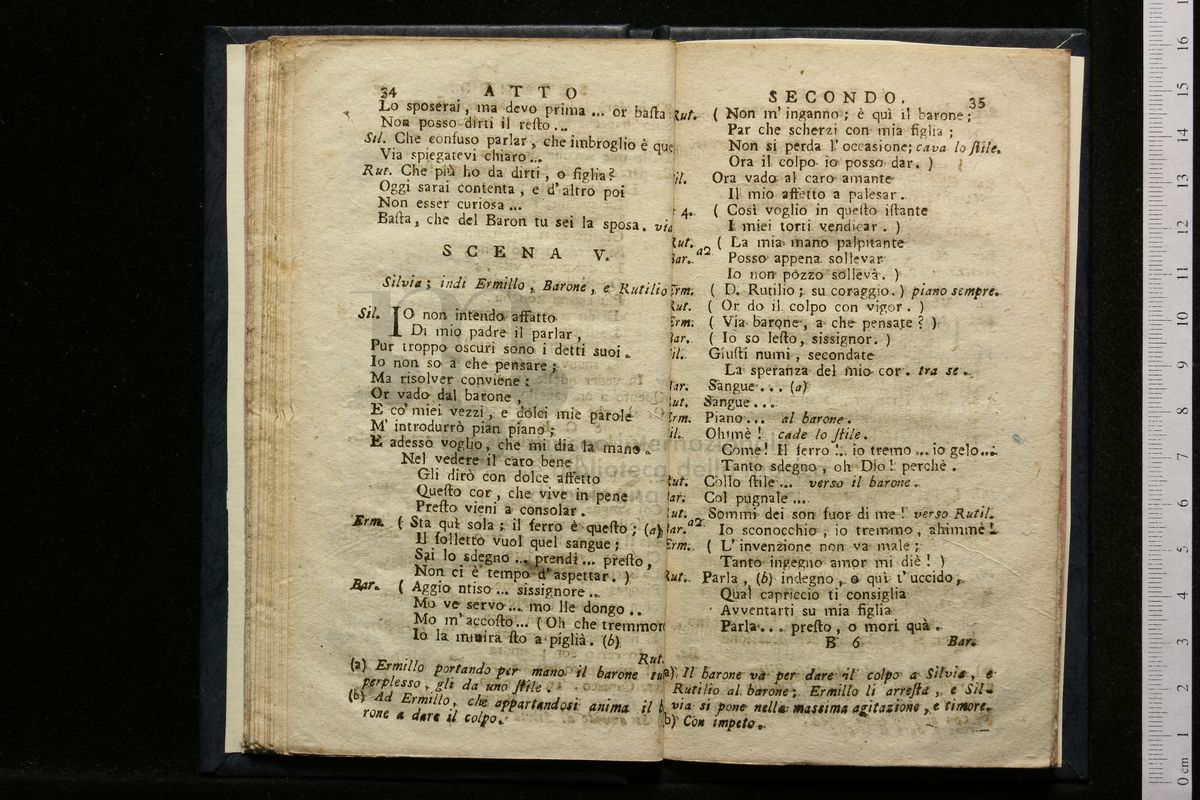 34 ATTO
Lo sposerai, ma devo prima ... or basta
Non posso dirti il resto...
Sil. Che confuso parlar, che imbroglio è que
Via spiegatevi chiaro...
Rut. Che più ho da dirti, o figlia?
Oggi sarai contenta, e d'altro poi
Non esser curiosa...
Basta, che del Baron tu sei la sposa. via
SCENA V.
Silvia; indi Ermillo, Barone, e Rutilio
Sil. IO non intendo affatto
Di mio padre il parlar,
Pur troppo oscuri sono i detti suoi.
Io non so a che pensare;
Ma risolver conviene:
Or vado dal barone,
E co' miei vezzi, e dolci mie parole
M' introdurrò pian piano;
E adesso voglio, che mi dia la mano.
Nel vedere il caro bene
Gli dirò con dolce affetto
Questo cor, che vive in pene
Presto vieni a consolar.
Erm. ( Sta quì sola; il ferro è questo; (a)
Il folletto vuol quel sangue;
Sai lo sdegno... prendi... presto,
Non ci è tempo d'aspettar. )
Bar. ( Aggio ntiso... sissignore...
Mo ve servo... mo lle dongo..
Mo m'accosto... (Oh che tremmor
Io la mmira sto a piglià. (b)
Rut.
(a) Ermillo portando per mano il barone tu
perplesso, gli da uno stile.
(b) Ad Ermillo, che appartandosi anima il b
rone a dare il colpo.
SECONDO. 35
Rut. ( Non m'inganno; è quì il barone;
Par che scherzi con mia figlia;
Non si perda l'occasione; cava lo stile.
Ora il colpo io posso dar. )
il. Ora vado al caro amante
Il mio affetto a palesar.
4. ( Così voglio in questo istante
I miei torti vendicar. )
Rut. ( La mia mano palpitante
Bar. a2 Posso appena sollevar
Io non pozzo sollevà. )
Erm. ( D. Rutilio; su coraggio. ) piano sempre.
Rut. ( Or do il colpo con vigor. )
Erm: ( Via barone, a che pensate? )
Bar. ( Io so lesto, sissignor. )
il. Giusti numi, secondate
La speranza del mio cor. tra se.
Bar. Sangue... (a)
Rut. Sangue...
Erm. Piano... al barone.
il. Ohimè! cade lo stile.
Come! Il ferro!.. io tremo... io gelo...
Tanto sdegno, oh Dio! perchè.
Rut. Collo stile... verso il barone.
Bar. Col pugnale...
Rut. Sommi dei son fuor di me! verso Rutil.
Bar. a2. Io sconocchio, io tremmo, ahimmè!
Erm. ( L'invenzione non va male;
Tanto ingegno amor mi diè! )
Rut. Parla, (b) indegno, o quì t'uccido,
Qual capriccio ti consiglia
Avventarti su mia figlia
Parla... presto, o mori quà.
B 6 Bar.
(a) Il barone va per dare il colpo a Silvia, e
Rutilio al barone; Ermillo li arresta, e Sil-
via si pone nella massima agitazione, e timore.
(b) Con impeto.